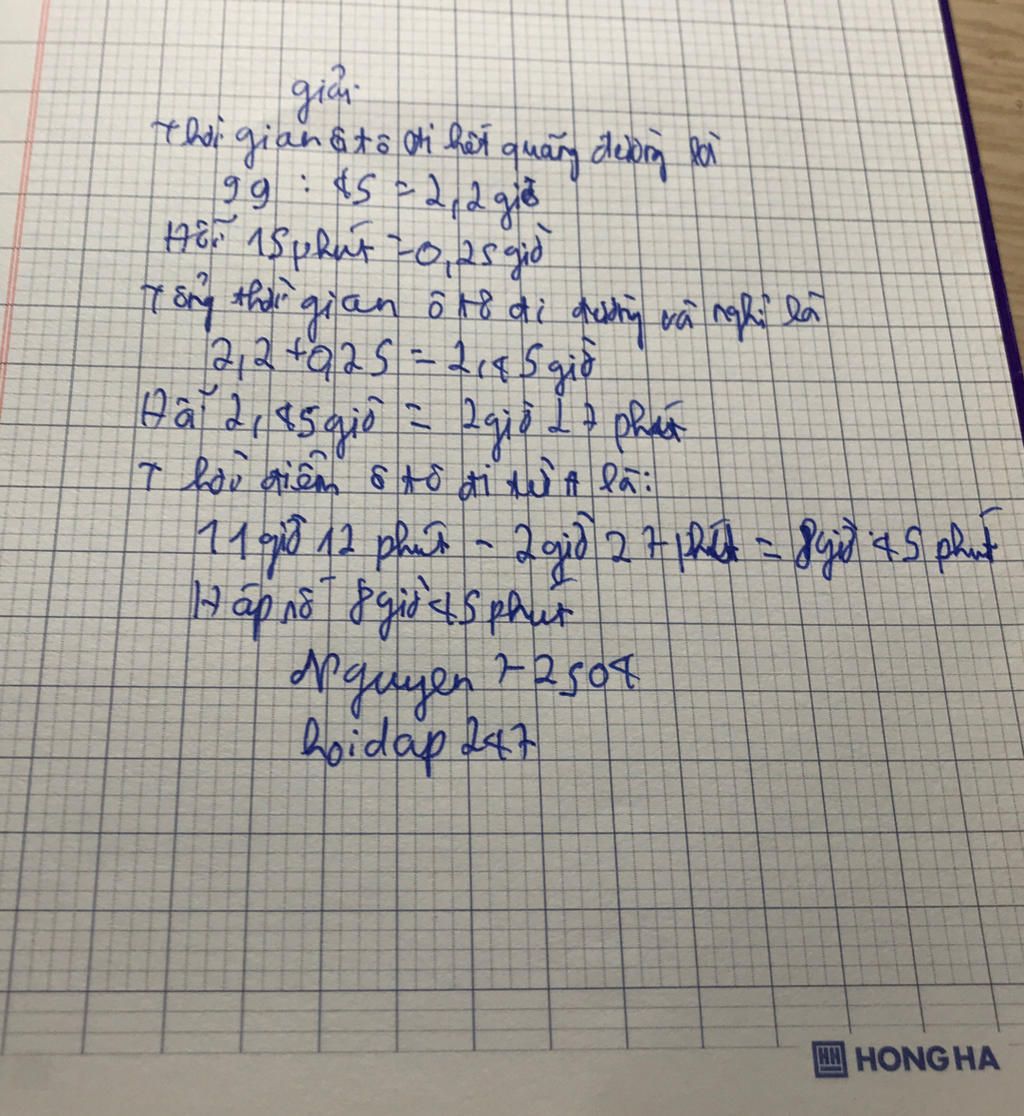 giải
Thời gian ô tô đi hết quãng đường là
99 : 45 = 2,2 giờ
Đổi 15 phút = 0,25 giờ
Tổng thời gian ô tô đi đường và nghỉ là
2,2 + 0,25 = 2,45 giờ
Đổi 2,45 giờ = 2 giờ 27 phút
Thời điểm ô tô đi từ A là:
11 giờ 12 phút - 2 giờ 27 phút = 8 giờ 45 phút
Đáp số 8 giờ 45 phút
Nguyen 72504
hoidap 247
HH HONG HA